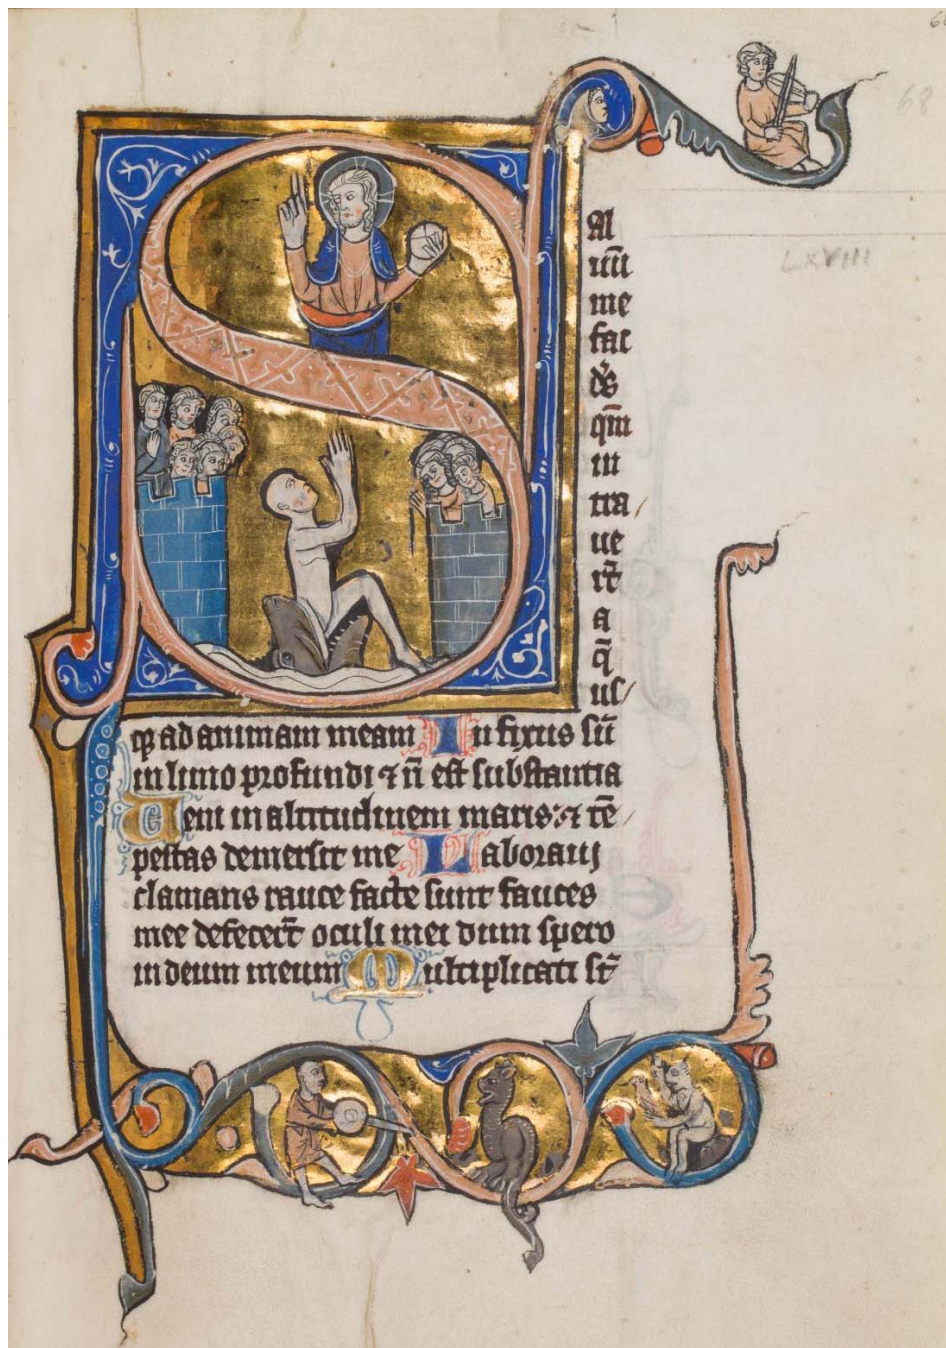 68
LXVIII
Sal
uū
me
fac
ds̄
qm̄
in
tra/
ue
rt̄
a
q̄
us/
qꝫ ad animam meam Infixus sū
in limo profundi ⁊ n̄ est substantia
Veni in altitudinem maris: ⁊ tē/
pestas demersit me Laboraui
clamans rauce facte sunt fauces
mee defecert̄ oculi mei dum spero
in deum meum Multiplicati st̄